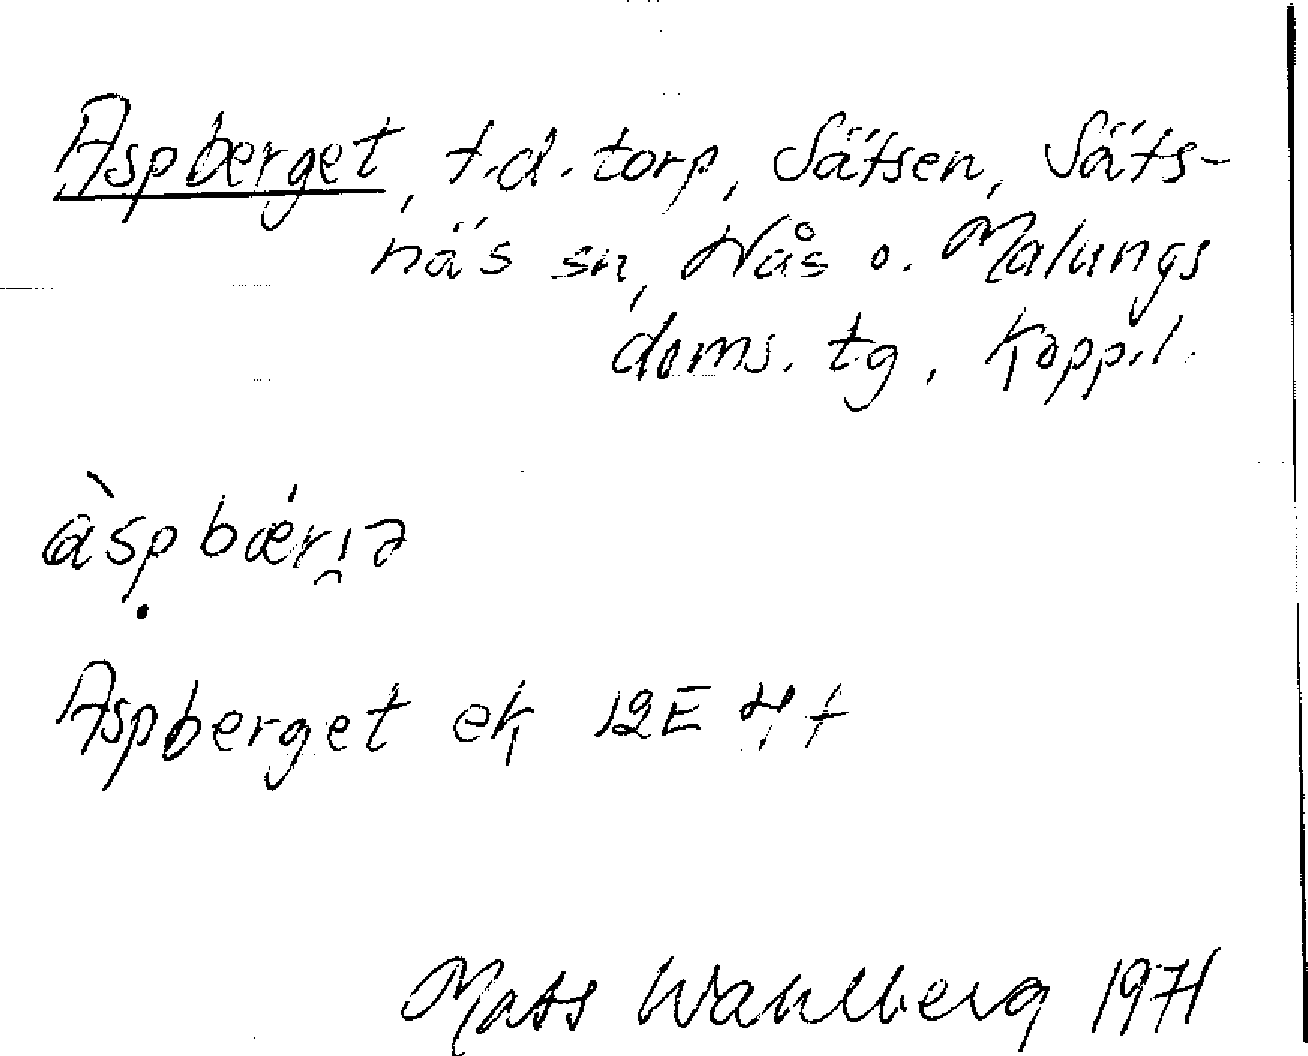 Aspberget, f.d. torp, Säfsen, Säfs-
näs sn, Nås o. Malungs
doms. tg, Kopp.l.
àsp̣bǽrı̯ə
Aspberget ek 12E 4f
Mats Wahlberg 1971